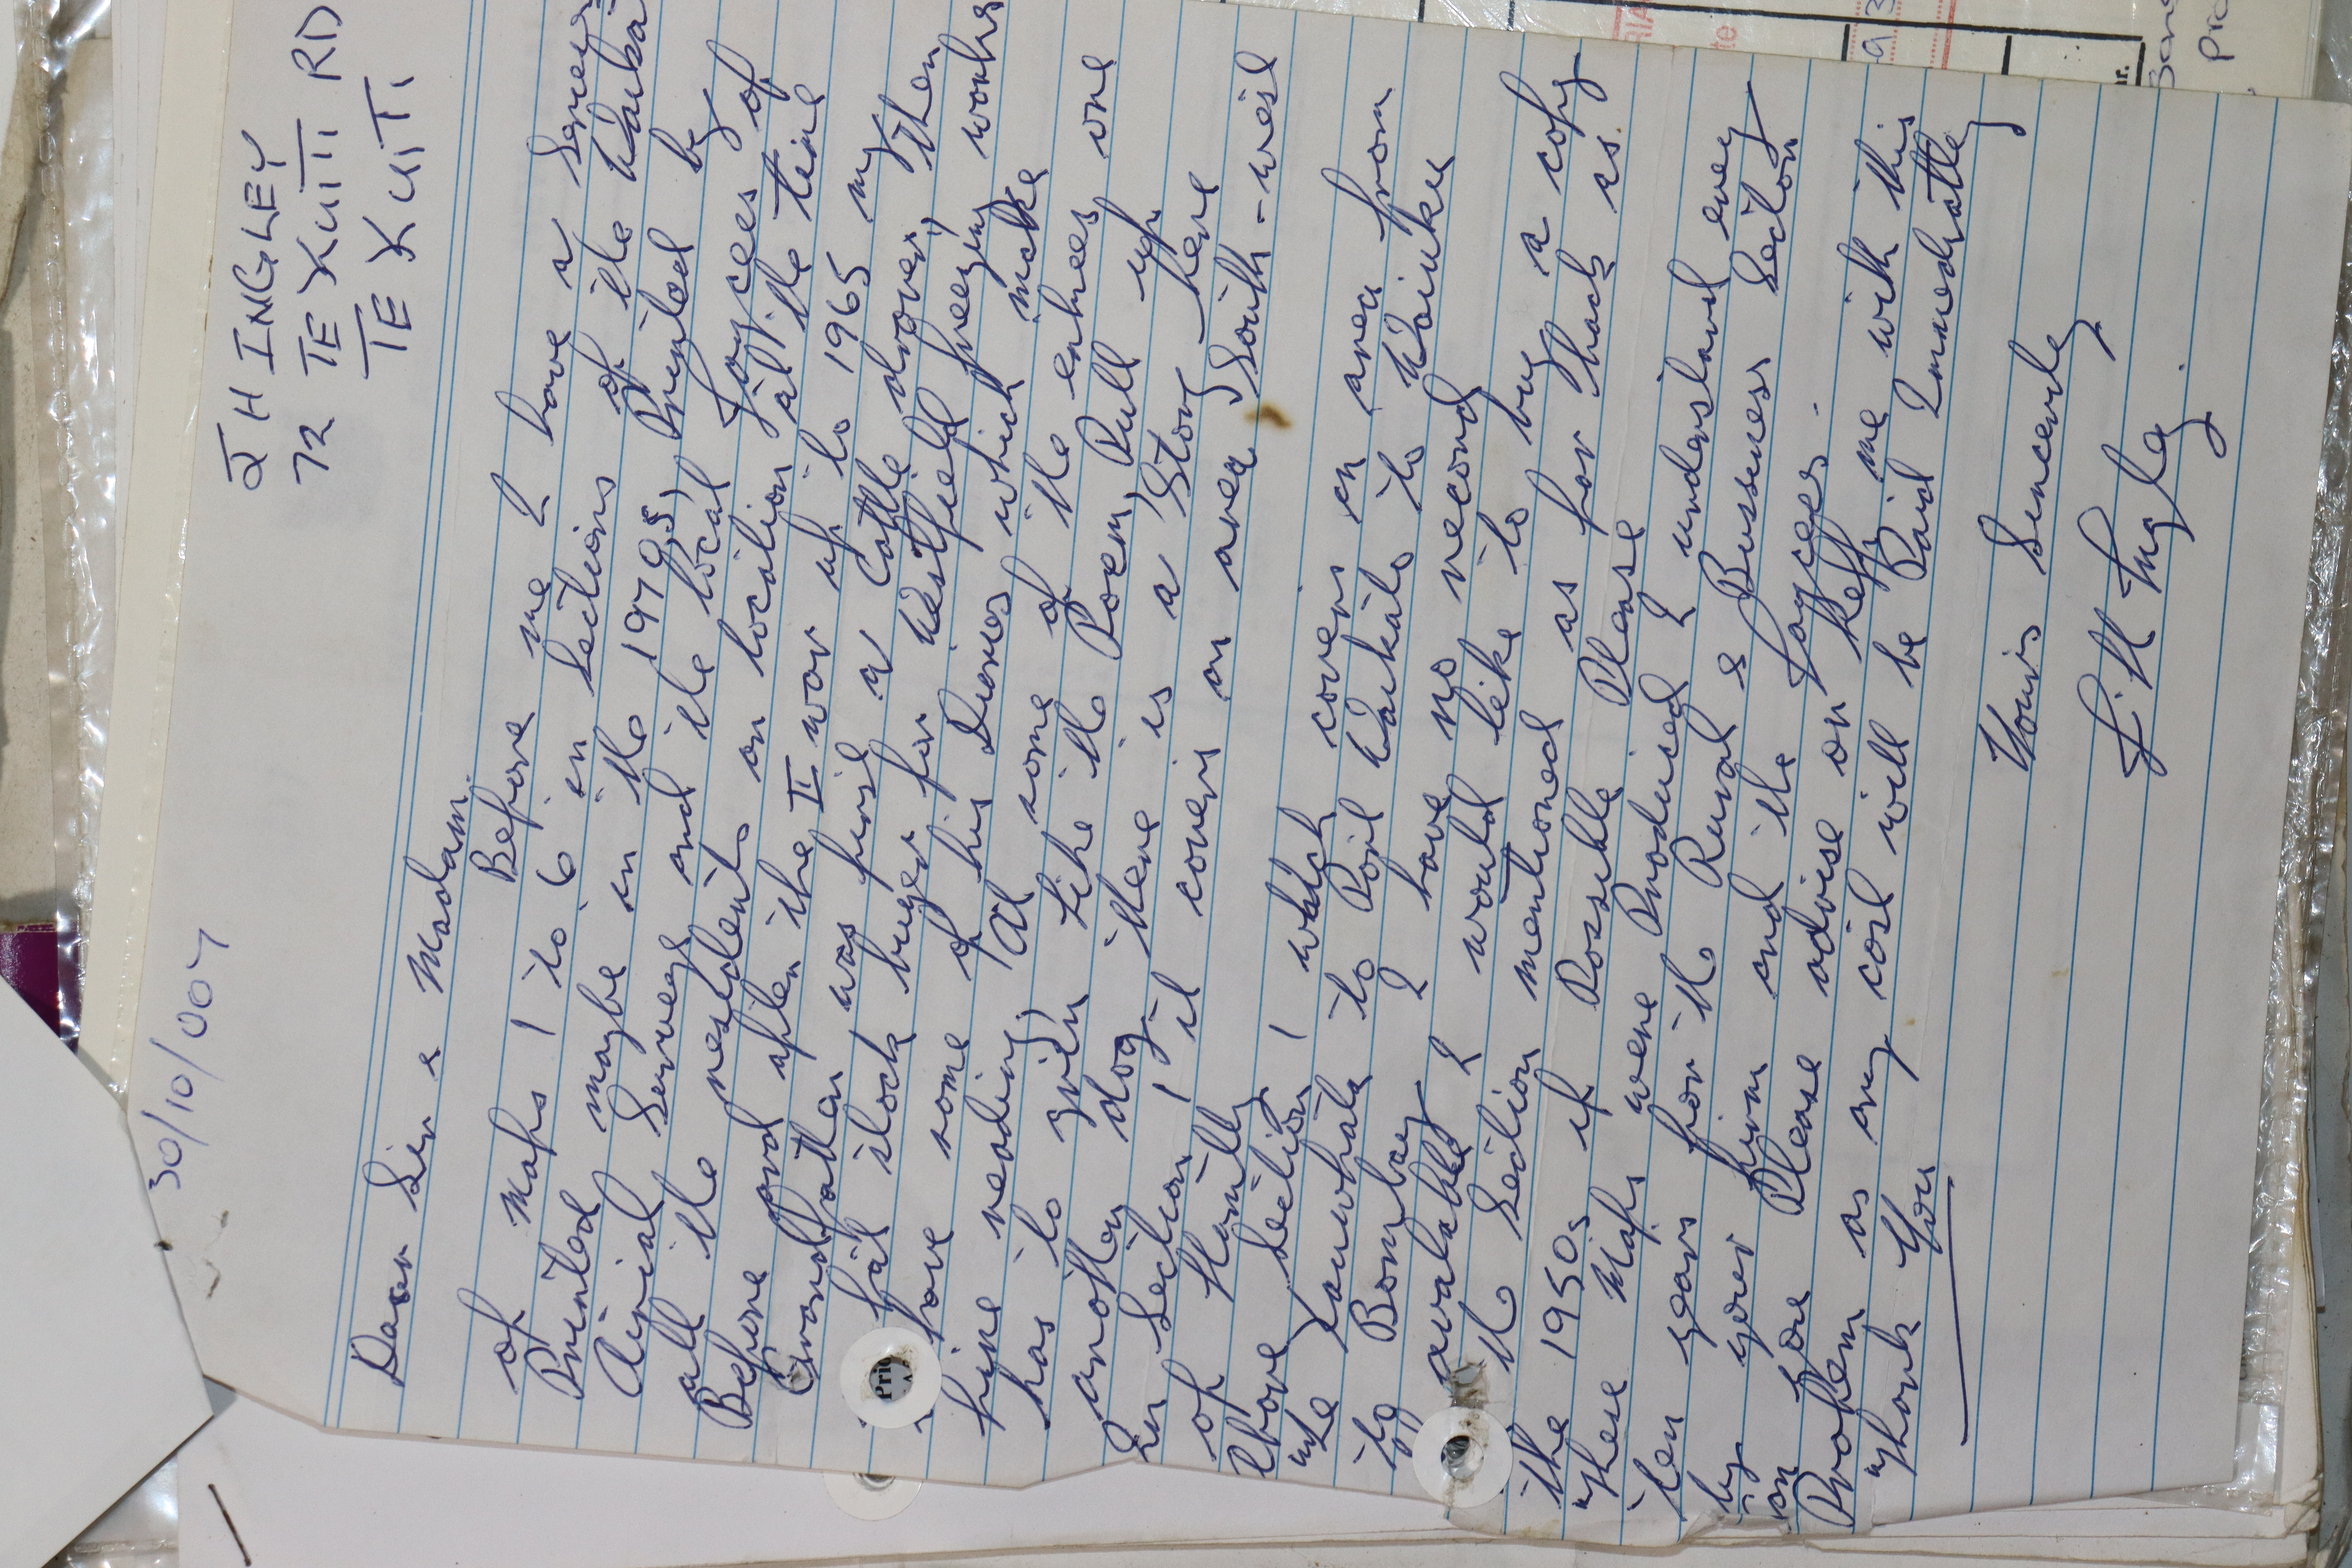 30/10/007
J H INGLEY
72 TE KUITI RD
TE KUITI
Dear Sir & Madam.
Before me I have a Series
of Maps 1 to 6 in Sections of the Waikato
Printed maybe in the 1970s, Printed by
Airial Serveys and the local Jaycees of
all the residents on location at the time
Before and after the II war up to 1965 my
Grandfather was first a Cattle drover, then
fat stock buyer for Westfield freezing works
I have some of his Diaries which make
fine reading, At some of the entrees one
has to grin like the Poem, Pull up
another dog, there is a Story here
In Section 1 it covers an area South-west
of Huntly
above Section 1 which covers an area from
the Kauwhata to Port Waikato to Waiuku
to Bombay I have no record
available I would like to buy a copy
the Section mentioned as far back as
the 1950s if Possable Please
These Maps were Produced I understand evey
ten years for the Rural & Bussness Section
by your firm and the Jaycees.
on Please advise or help me with this
Problem as any cost will be Paid Immediatly
Thank You
Yours Sincerely
J. H Ingley.